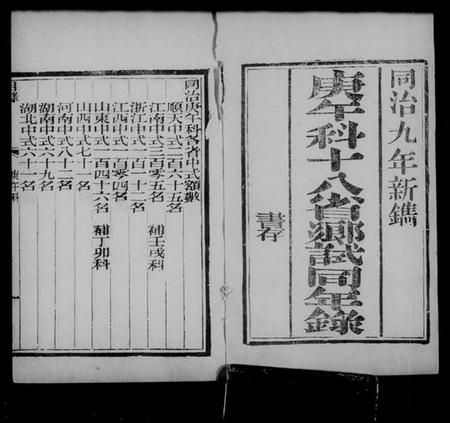 同治九年新鐫
庚午科十八省鄉試同年錄
書存
同治庚午科各省中式額數
順天中式二百六十五名
江南中式三百零五名 補壬戌科
浙江中式一百一十二名
江西中式一百零四名 補丁卯科
山東中式一百四十六名
山西中式七十一名
河南中式八十二名
湖南中式六十九名
湖北中式六十一名
目錄
庚午科